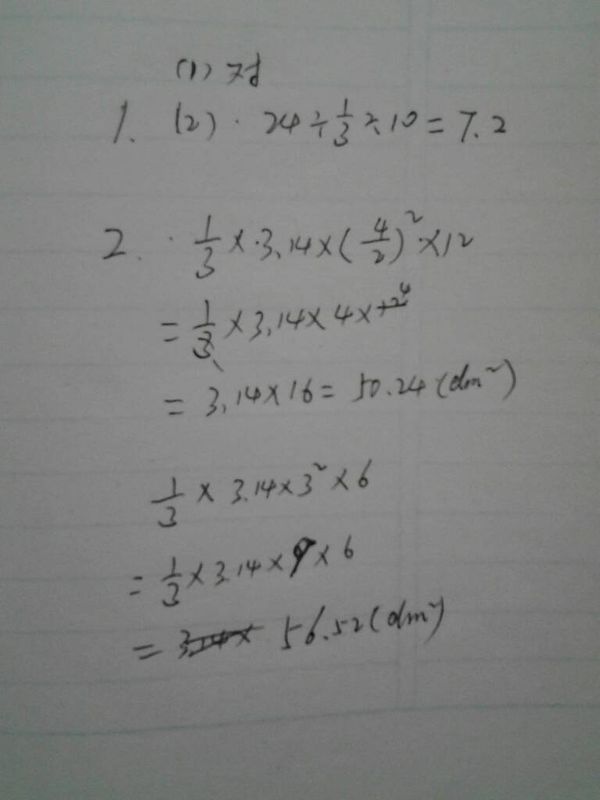 (1) 对
1. (2) · 24÷1/3÷10=7.2
2. · 1/3×3.14×(4/2)²×12
=1/3×3.14×4×12 4
=3.14×16=50.24(dm²)
1/3×3.14×3²×6
=1/3×3.14×9×6
=3.14× 56.52(dm²)